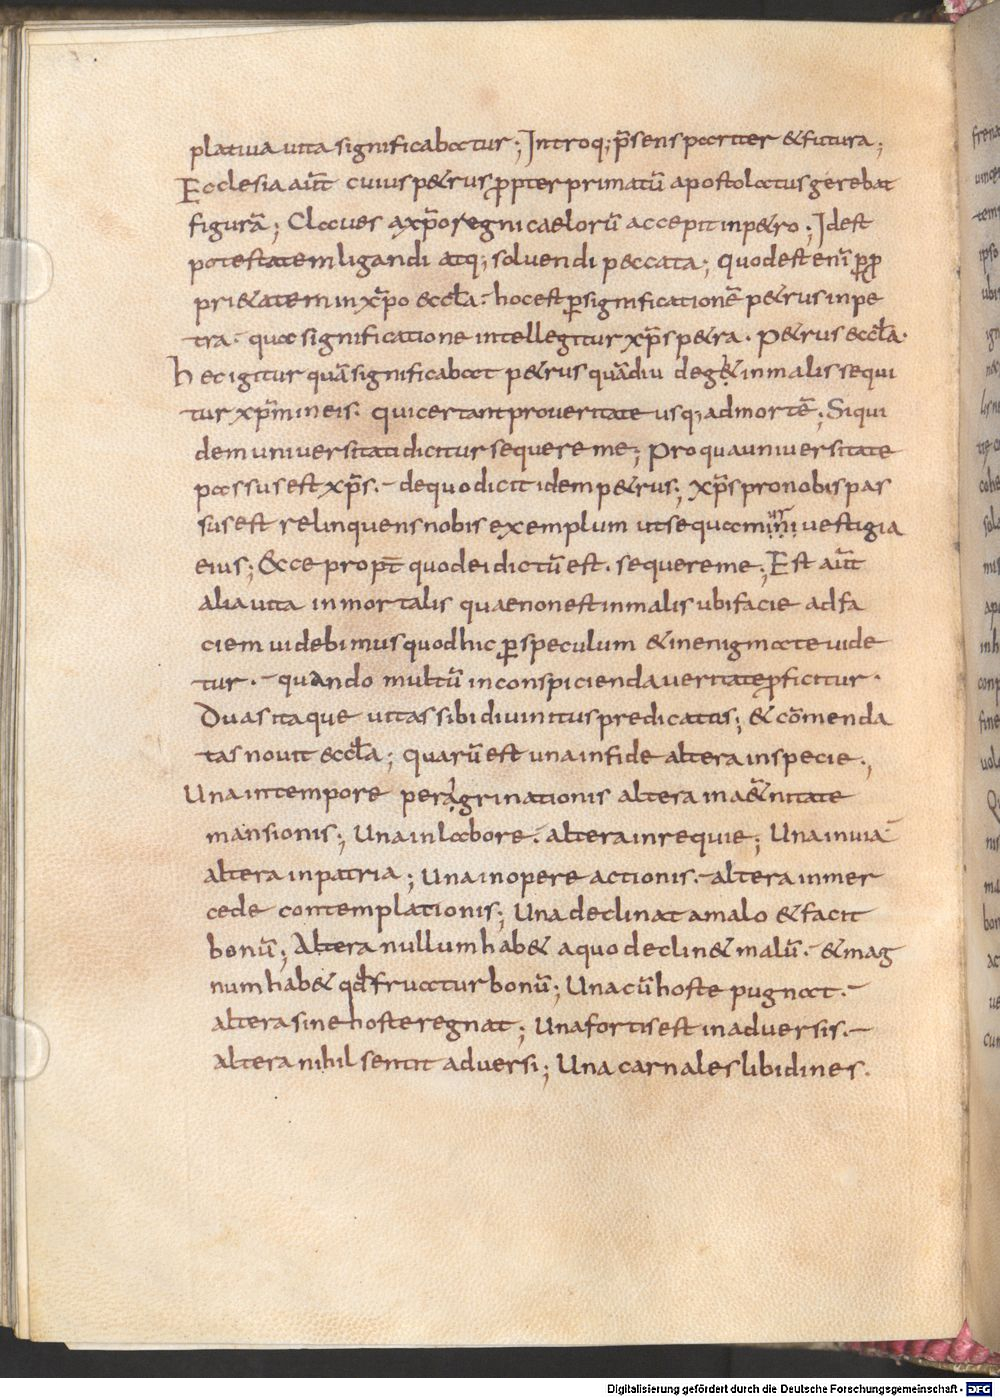 platiua uita significabatur; Introq; p̄sens pariter & futura;
Ecclesia aut̄ cuius petrus p̱pter primatū apostolatus gerebat
figurā; Claues a xp̄o regni caelorū accepit in petro; Id est
potestatem ligandi atq; soluendi peccata; Quod est enī p̱p
prietatem in xp̄o eccl̄a. hoc est p̱ significationē petrus in pe
tra. qua significatione intellegitur xp̄s petra. Petrus eccl̄a.
hec igitur quā significabat petrus quādiu deget in malis sequi
tur xp̄m in eis. qui certant pro ueritate usq; ad mortē; Siqui
dem uniuersitati dicitur sequere me; Pro qua uniuersitate
passus est xp̄s. de quo dicit idem petrus; xp̄s pro nobis pas
sus est relinquens nobis exemplum ut sequamini ur uestigia
eius; Ecce propt̄ quod ei dictū est. sequere me; Est aut̄
alia uita inmortalis quae non est in malis ubi facie ad fa
ciem uidebimus quod hic p̱ speculum & in enigmate uide
tur. quando multū in conspicienda ueritate p̱ficitur.
Duas itaque uitas sibi diuinitus predicatas; & cōmenda
tas nouit eccl̄a; quarū est una in fide altera in specie;
Una in tempore peregrinationis altera in aeternitate
mansionis; Una in labore. altera in requie; Una in uia
altera in patria; Una in opere actionis. altera in mer
cede contemplationis; Una declinat a malo & facit
bonū; Altera nullum habet a quo declinet malū. & mag
num habet qd̄ fruatur bonū; Una cū hoste pugnat.
altera sine hoste regnat; Una fortis est in aduersis.
altera nihil sentit aduersi; Una carnales libidines.
Digitalisierung gefördert durch die Deutsche Forschungsgemeinschaft - DFG